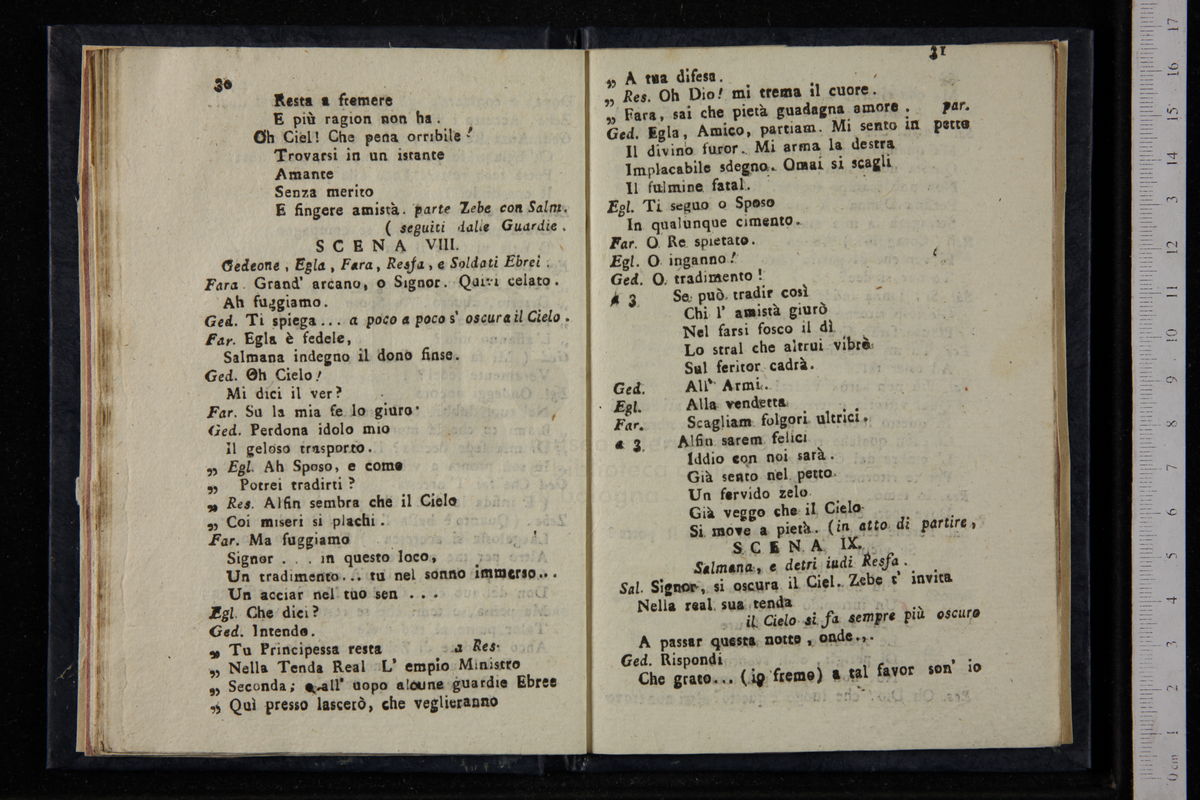 30
Resta a fremere
E più ragion non ha.
Oh Ciel! Che pena orribile!
Trovarsi in un istante
Amante
Senza merito
E fingere amistà. parte Zebe con Salm.
( seguiti dalle Guardie.
SCENA VIII.
Gedeone, Egla, Fara, Resfa, e Soldati Ebrei.
Fara. Grand' arcano, o Signor. Quivi celato.
Ah fuggiamo.
Ged. Ti spiega... a poco a poco s' oscura il Cielo.
Far. Egla è fedele,
Salmana indegno il dono finse.
Ged. Oh Cielo!
Mi dici il ver?
Far. Su la mia fe lo giuro
Ged. Perdona idolo mio
Il geloso trasporto.
„ Egl. Ah Sposo, e come
„ Potrei tradirti?
„ Res. Alfin sembra che il Cielo
„ Coi miseri si plachi.
Far. Ma fuggiamo
Signor . . . in questo loco,
Un tradimento... tu nel sonno immerso...
Un acciar nel tuo sen . . .
Egl. Che dici?
Ged. Intendo.
„ Tu Principessa resta a Res.
„ Nella Tenda Real L' empio Ministro
„ Seconda; all' uopo alcune guardie Ebree
„ Quì presso lascerò, che veglieranno
31
„ A tua difesa.
„ Res. Oh Dio! mi trema il cuore.
„ Fara, sai che pietà guadagna amore. par.
Ged. Egla, Amico, partiam. Mi sento in petto
Il divino furor. Mi arma la destra
Implacabile sdegno. Omai si scagli
Il fulmine fatal.
Egl. Ti seguo o Sposo
In qualunque cimento.
Far. O Re spietato.
Egl. O inganno!
Ged. O tradimento!
A 3 Se può tradir così
Chi l' amistà giurò
Nel farsi fosco il dì
Lo stral che altrui vibrò
Sul feritor cadrà.
Ged. All' Armi.
Egl. Alla vendetta
Far. Scagliam folgori ultrici.
a 3. Alfin sarem felici
Iddio con noi sarà.
Già sento nel petto
Un fervido zelo
Già veggo che il Cielo
Si move a pietà. (in atto di partire,
SCENA IX.
Salmana, e detri iudi Resfa.
Sal. Signor, si oscura il Ciel. Zebe t' invita
Nella real sua tenda
il Cielo si fa sempre più oscuro
A passar questa notte, onde...
Ged. Rispondi
Che grato... (io fremo) a tal favor son' io